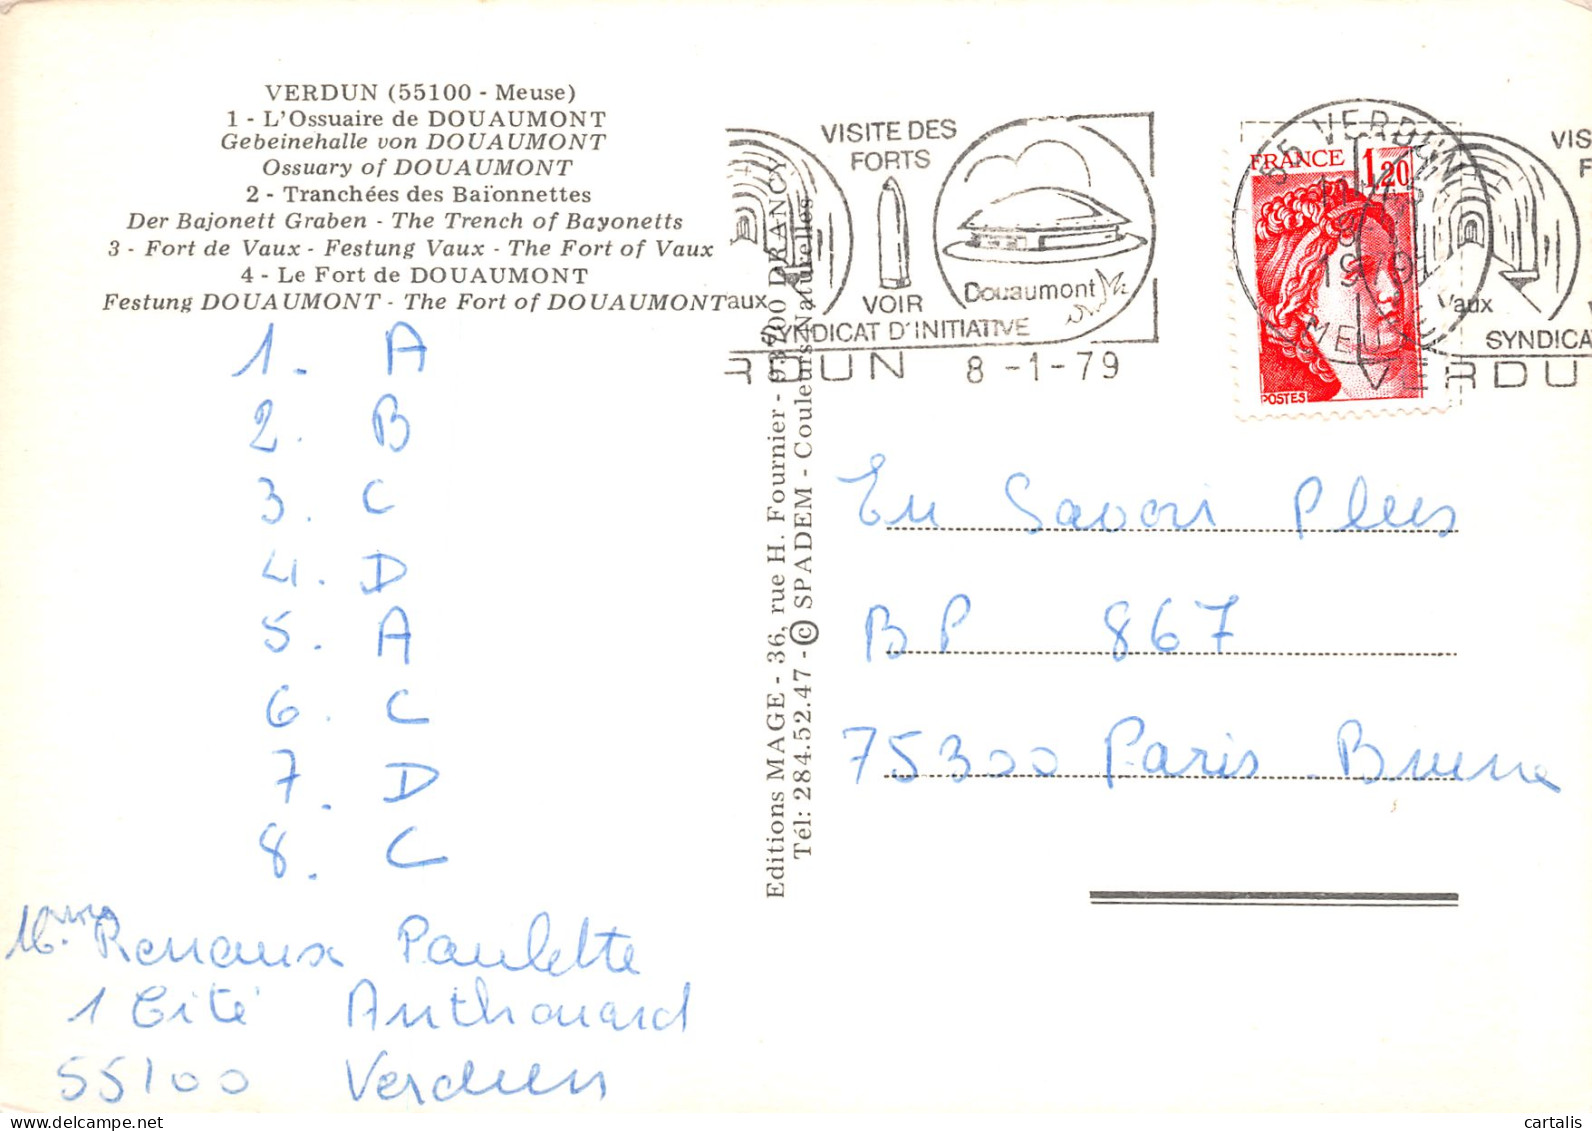 VERDUN (55100 - Meuse)
1 - L'Ossuaire de DOUAUMONT
Gebeinehalle von DOUAUMONT
Ossuary of DOUAUMONT
2 - Tranchées des Baïonnettes
Der Bajonett Graben - The Trench of Bayonetts
3 - Fort de Vaux - Festung Vaux - The Fort of Vaux
4 - Le Fort de DOUAUMONT
Festung DOUAUMONT - The Fort of DOUAUMONT
1. A
2. B
3. C
4. D
5. A
6. C
7. D
8. C
Renaux Paulette
1 Cité Anthouard
55100 Verdun
Editions MAGE - 36, rue H. Fournier - 93700 DRANCY
Tél: 284.52.47 - © SPADEM - Couleurs Naturelles
VISITE DES
FORTS
aux
VOIR
Douaumont
SYNDICAT D'INITIATIVE
RDUN 8-1-79
55 VERDUN
19
MEUSE
FRANCE 1,20
POSTES
VIS
F
Vaux
V
SYNDICA
VERDU
En Savoir Plus
BP 867
75300 Paris Brune
cartalis